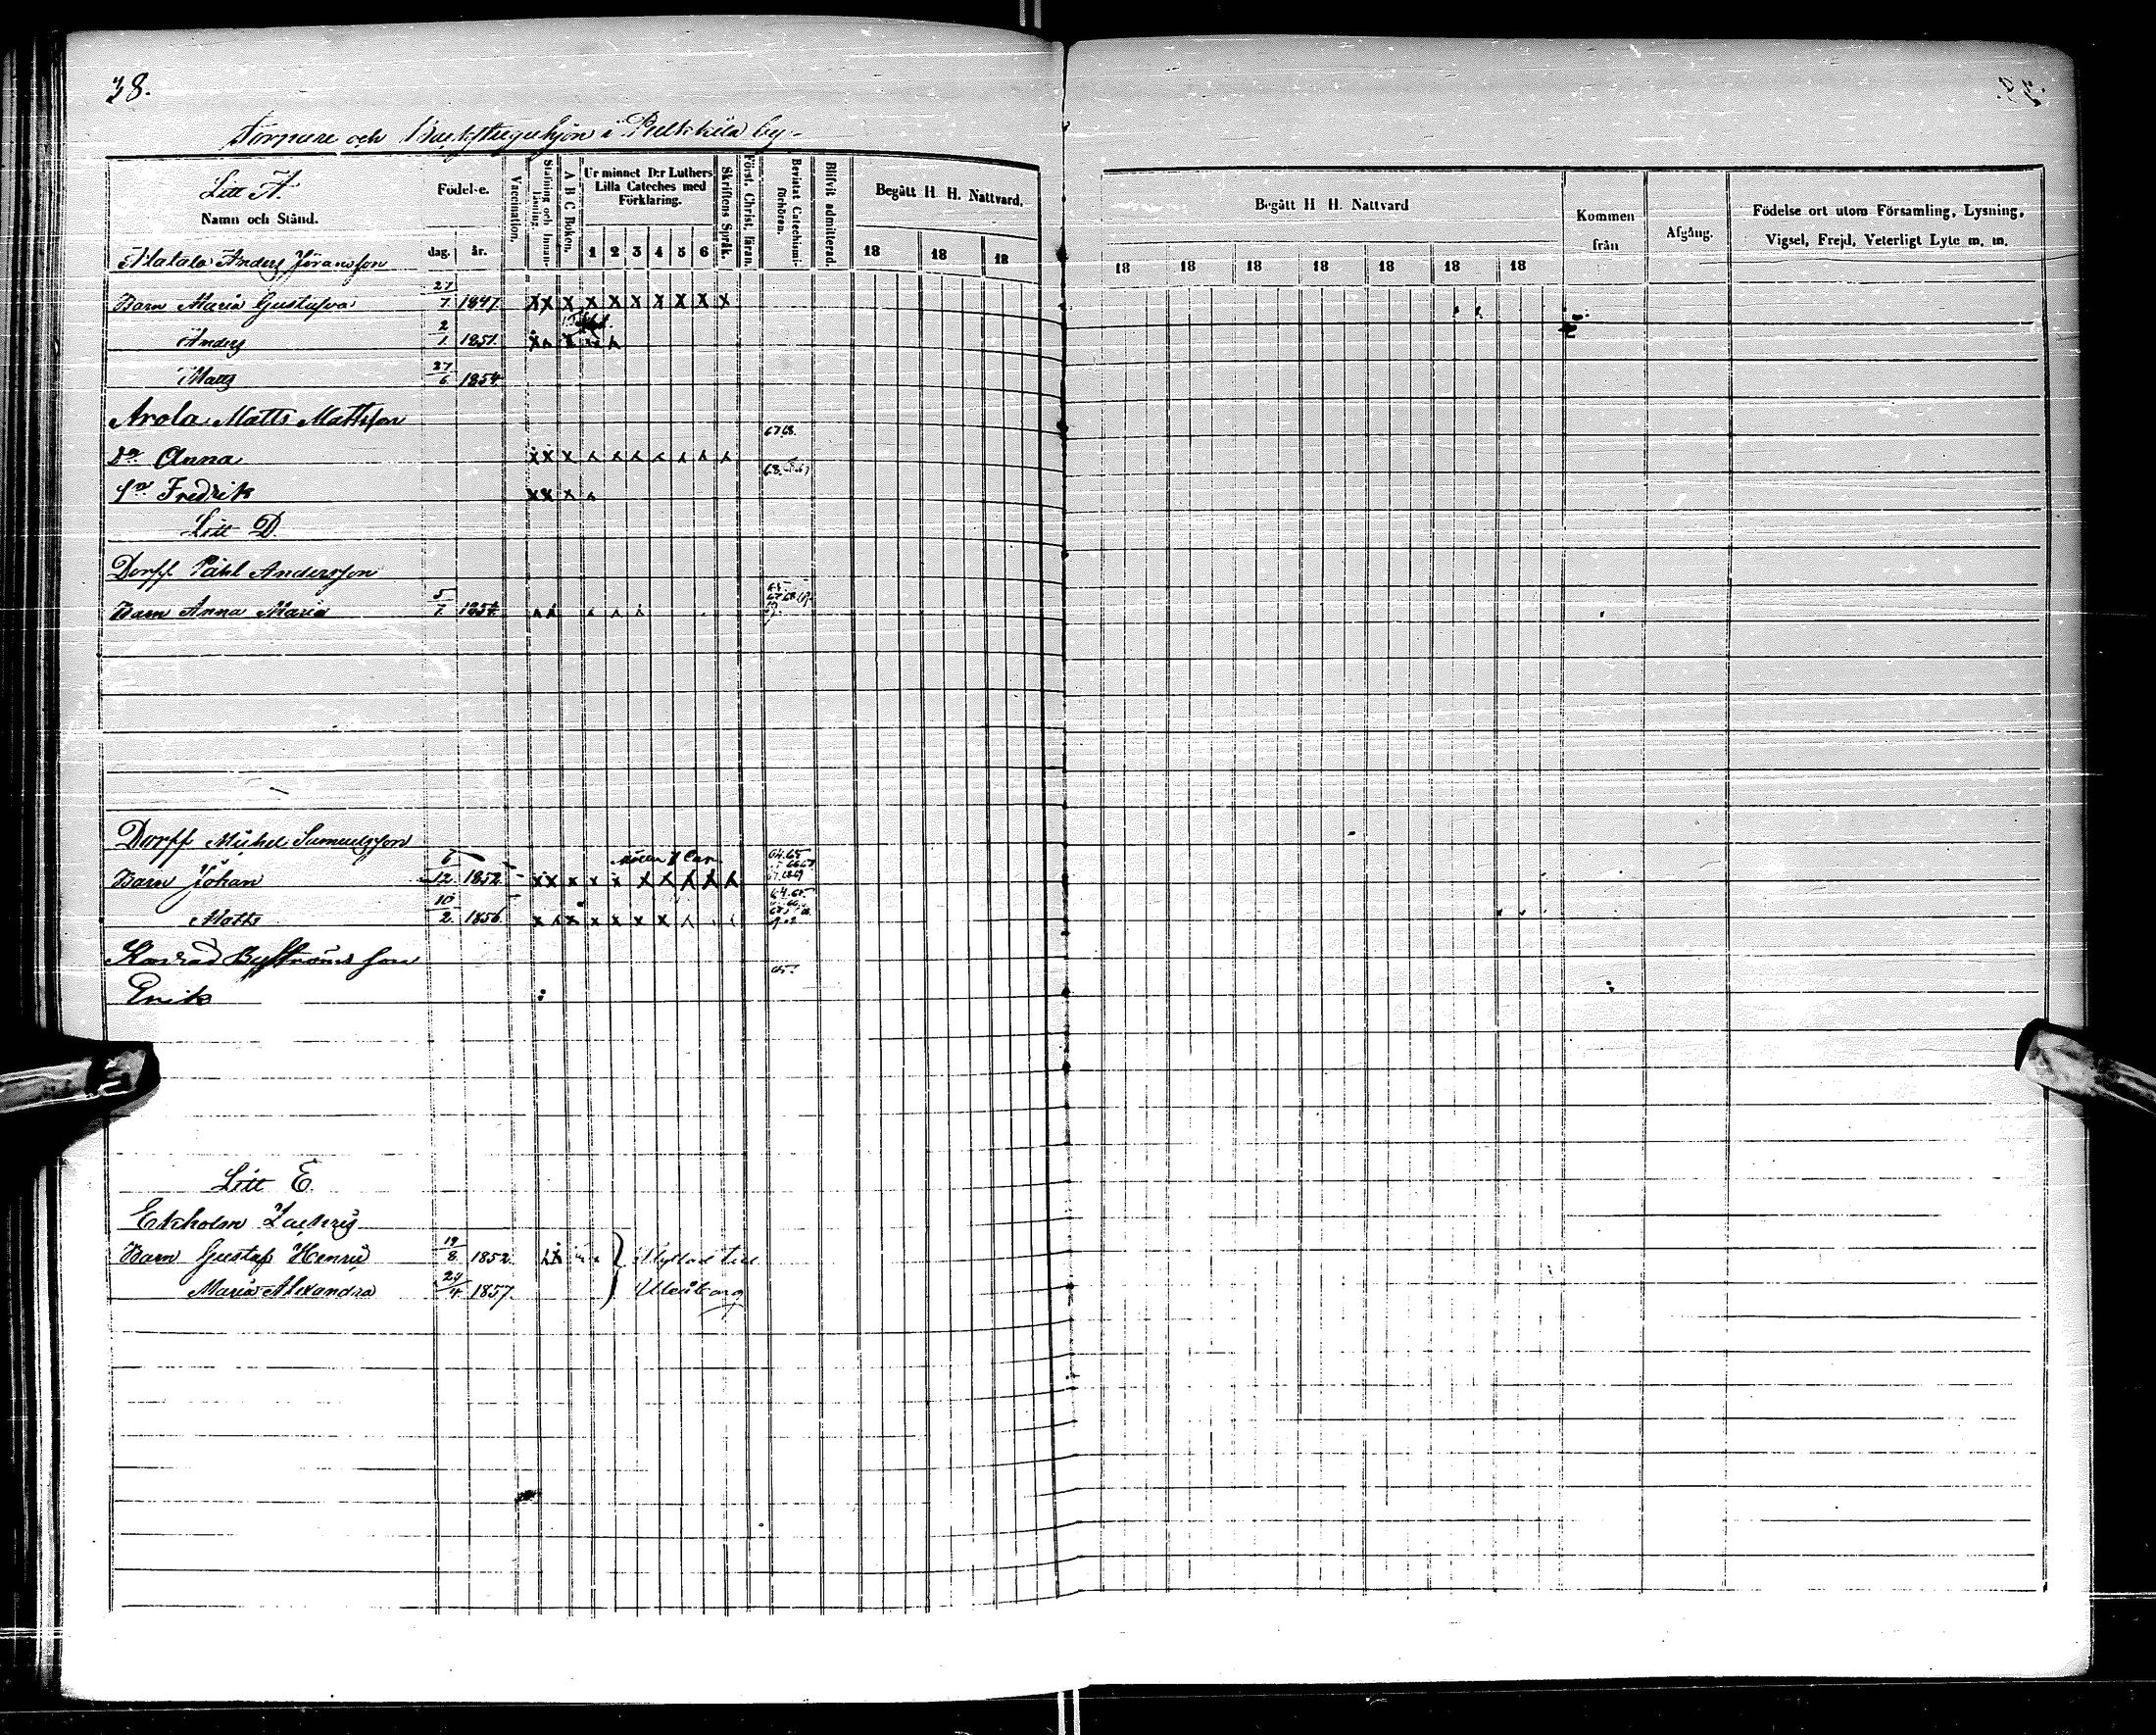 38.
39.
Torpare och Backstuguhjon i Pulkkila by.
Litt A.
Namn och Stånd.
Födelse.
dag. år.
Vaccination.
Stafning och Innanläsning.
A B C Boken.
Ur minnet D:r Luthers Lilla Cateches med Förklaring.
1 2 3 4 5 6
Skriftens Språk.
Först. Christ. läran.
Bevistat Catechismiförhören.
Blifvit admitterad.
Begått H. H. Nattvard.
18 18 18
Begått H H. Nattvard
18 18 18 18 18 18 18
Kommen från
Afgång.
Födelse ort utom Församling, Lysning, Vigsel, Frejd, Veterligt Lyte m. m.
Alatalo Anders Jöransson
Barn Maria Gustafva 27/7 1847. x x x x x x x x x x
Anders 2/1 1851.
Matts 27/6 1854
Arola Matts Mattsson
Dr. Anna 67.68.
Sn. Fredrik 68.
Litt D.
Dorff Påhl Andersson
Barn Anna Maria 5/7 1854. 65. 67.68.69.
Dorff Michel Samuelsson
Barn Johan 6/12 1852 64.65
Matts 10/2. 1856. 64.65
Konrad Byströms son
Erik 65.
Litt E.
Ekholm Zachris
Barn Gustaf Henric 19/8 1852. Flyttad till
Maria Alexandra 24/4 1857. Uleåborg